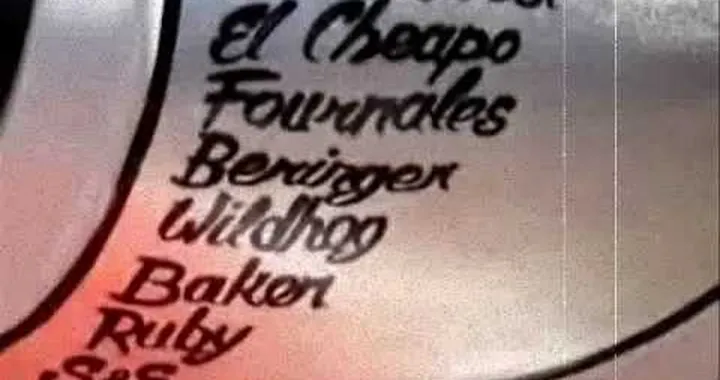 El Cheapo
Fournales
Beringer
Wildhog
Baker
Ruby
S&S